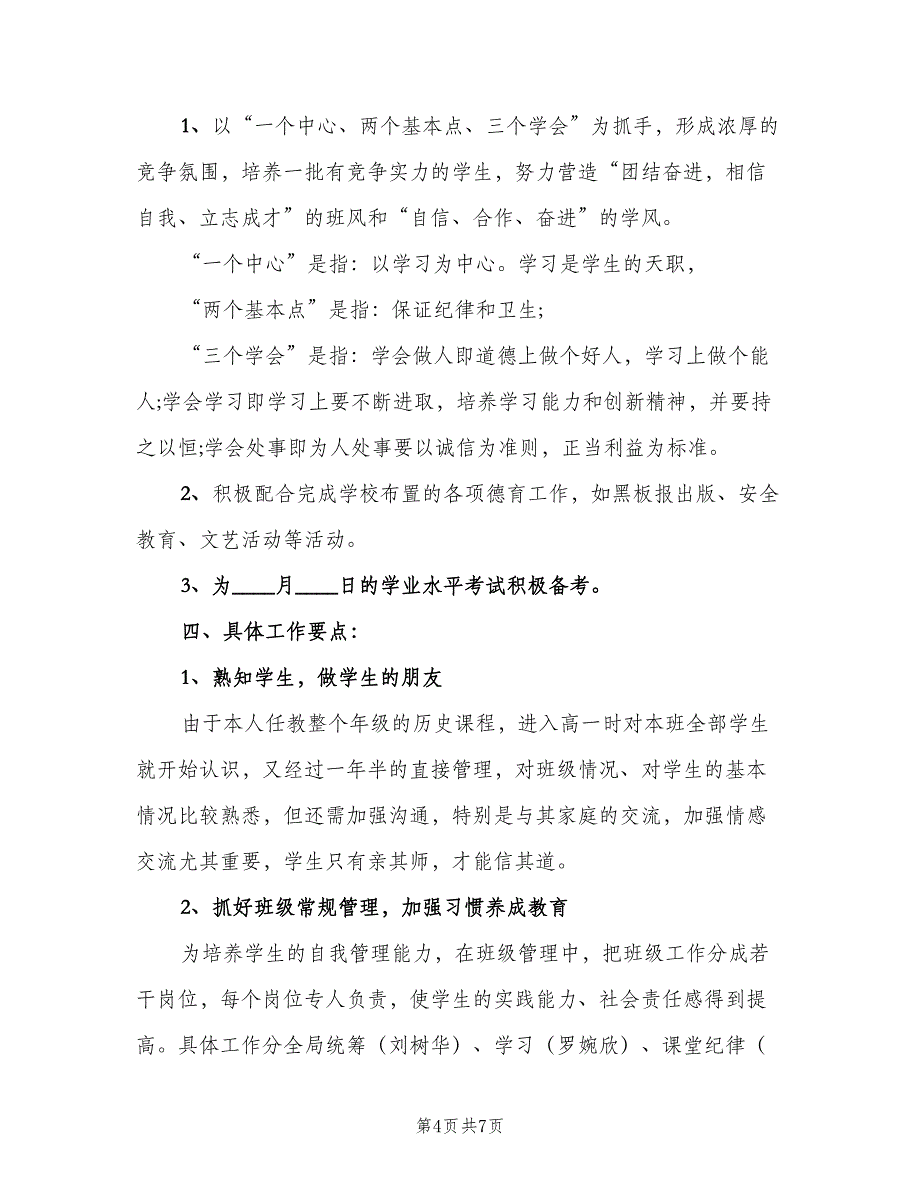 1、以“一个中心、两个基本点、三个学会”为抓手，形成浓厚的
竞争氛围，培养一批有竞争实力的学生，努力营造“团结奋进，相信
自我、立志成才”的班风和“自信、合作、奋进”的学风。
“一个中心”是指：以学习为中心。学习是学生的天职，
“两个基本点”是指：保证纪律和卫生;
“三个学会”是指：学会做人即道德上做个好人，学习上做个能
人;学会学习即学习上要不断进取，培养学习能力和创新精神，并要持
之以恒;学会处事即为人处事要以诚信为准则，正当利益为标准。
2、积极配合完成学校布置的各项德育工作，如黑板报出版、安全
教育、文艺活动等活动。
3、为____月____日的学业水平考试积极备考。
四、具体工作要点：
1、熟知学生，做学生的朋友
由于本人任教整个年级的历史课程，进入高一时对本班全部学生
就开始认识，又经过一年半的直接管理，对班级情况、对学生的基本
情况比较熟悉，但还需加强沟通，特别是与其家庭的交流，加强情感
交流尤其重要，学生只有亲其师，才能信其道。
2、抓好班级常规管理，加强习惯养成教育
为培养学生的自我管理能力，在班级管理中，把班级工作分成若
干岗位，每个岗位专人负责，使学生的实践能力、社会责任感得到提
高。具体工作分全局统筹（刘树华）、学习（罗婉欣）、课堂纪律（
第4页共7页